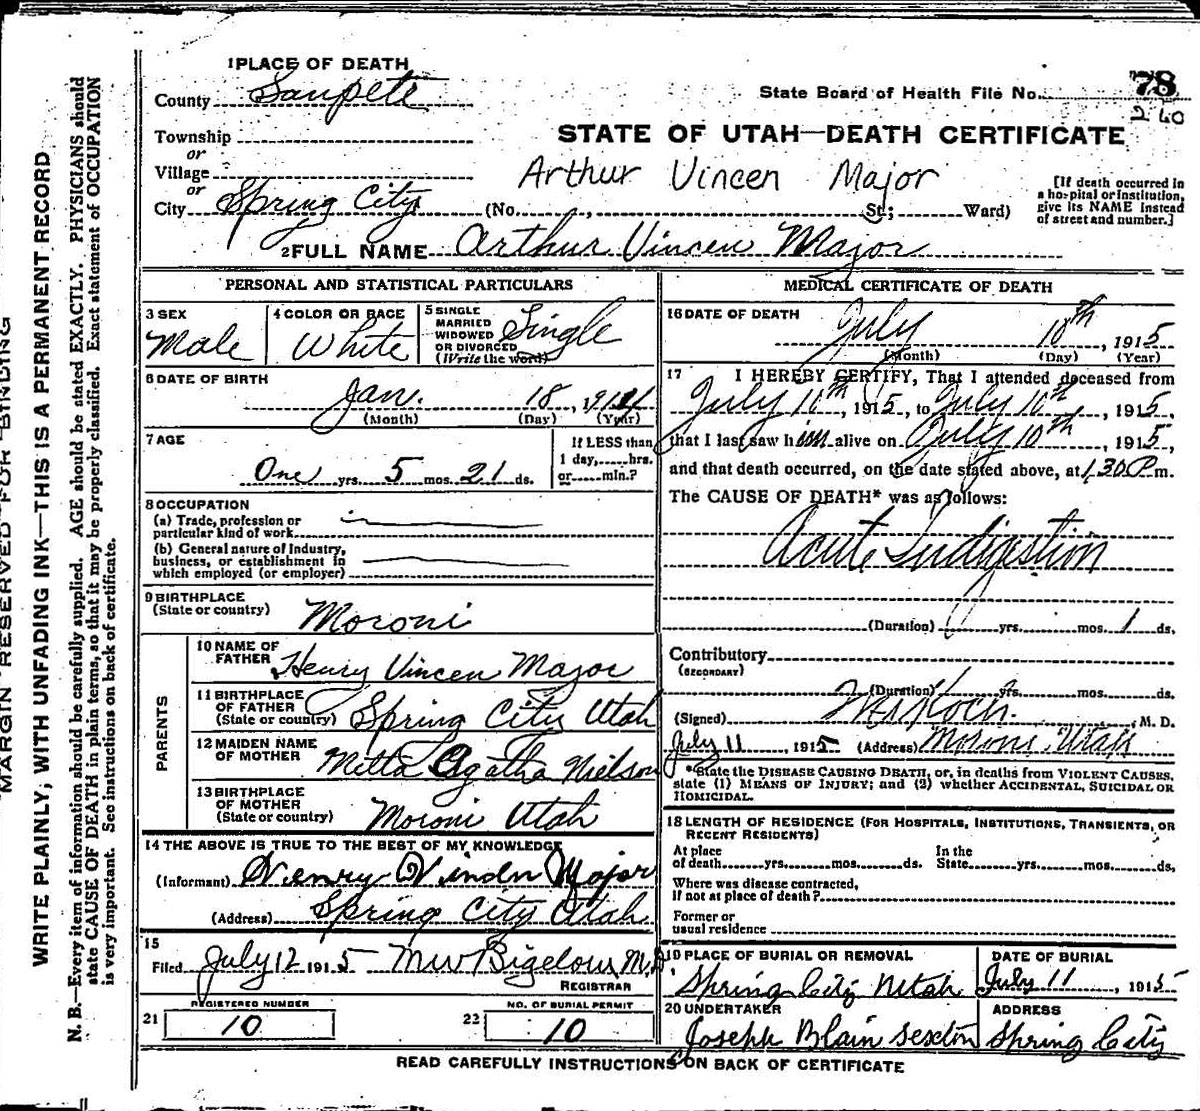 MARGIN RESERVED FOR BINDING
WRITE PLAINLY, WITH UNFADING INK—THIS IS A PERMANENT RECORD
N. B.—Every item of information should be carefully supplied. AGE should be stated EXACTLY. PHYSICIANS should
state CAUSE OF DEATH in plain terms, so that it may be properly classified. Exact statement of OCCUPATION
is very important. See instructions on back of certificate.
1 PLACE OF DEATH
County Sanpete
State Board of Health File No. 78
260
Township
or
Village
or
City Spring City
STATE OF UTAH—DEATH CERTIFICATE
Arthur Vincen Major
(No. , St; Ward)
[If death occurred in
a hospital or institution,
give its NAME instead
of street and number.]
2 FULL NAME Arthur Vincen Major
PERSONAL AND STATISTICAL PARTICULARS
3 SEX
Male
4 COLOR OR RACE
White
5 SINGLE
MARRIED
WIDOWED
OR DIVORCED
(Write the word)
Single
6 DATE OF BIRTH
Jan. 18, 191
(Month) (Day) (Year)
7 AGE
One yrs. 5 mos. 21 ds.
If LESS than
1 day, hrs.
or min.?
8 OCCUPATION
(a) Trade, profession or
particular kind of work
(b) General nature of Industry,
business, or establishment in
which employed (or employer)
9 BIRTHPLACE
(State or country) Moroni
PARENTS
10 NAME OF
FATHER Henry Vincen Major
11 BIRTHPLACE
OF FATHER
(State or country) Spring City Utah
12 MAIDEN NAME
OF MOTHER Mitta Agatha Nielson
13 BIRTHPLACE
OF MOTHER
(State or country) Moroni Utah
14 THE ABOVE IS TRUE TO THE BEST OF MY KNOWLEDGE
(Informant) Henry Major
(Address) Spring City Utah
15
Filed July 12 1915 MW Bigelow M.D
REGISTRAR
REGISTERED NUMBER
21 10
NO. OF BURIAL PERMIT
22 10
MEDICAL CERTIFICATE OF DEATH
16 DATE OF DEATH
July 10th, 1915
(Month) (Day) (Year)
17 I HEREBY CERTIFY, That I attended deceased from
July 10th, 1915, to July 10th, 1915,
that I last saw him alive on July 10th, 1915,
and that death occurred, on the date stated above, at 1.30 P.m.
The CAUSE OF DEATH* was as follows:
Acute Indigestion
(Duration) yrs. mos. 1 ds.
Contributory
(SECONDARY)
(Duration) yrs. mos. ds.
(Signed) , M. D.
July 11, 1915 (Address) Moroni Utah
*State the DISEASE CAUSING DEATH, or, in deaths from VIOLENT CAUSES,
state (1) MEANS OF INJURY; and (2) whether ACCIDENTAL, SUICIDAL OR
HOMICIDAL.
18 LENGTH OF RESIDENCE (FOR HOSPITALS, INSTITUTIONS, TRANSIENTS, OR
RECENT RESIDENTS)
At place
of death yrs. mos. ds.
In the
State yrs. mos. ds.
Where was disease contracted,
if not at place of death?
Former or
usual residence
19 PLACE OF BURIAL OR REMOVAL
Spring City Utah
DATE OF BURIAL
July 11, 1915
20 UNDERTAKER
Joseph Blain sexton
ADDRESS
Spring City
READ CAREFULLY INSTRUCTIONS ON BACK OF CERTIFICATE